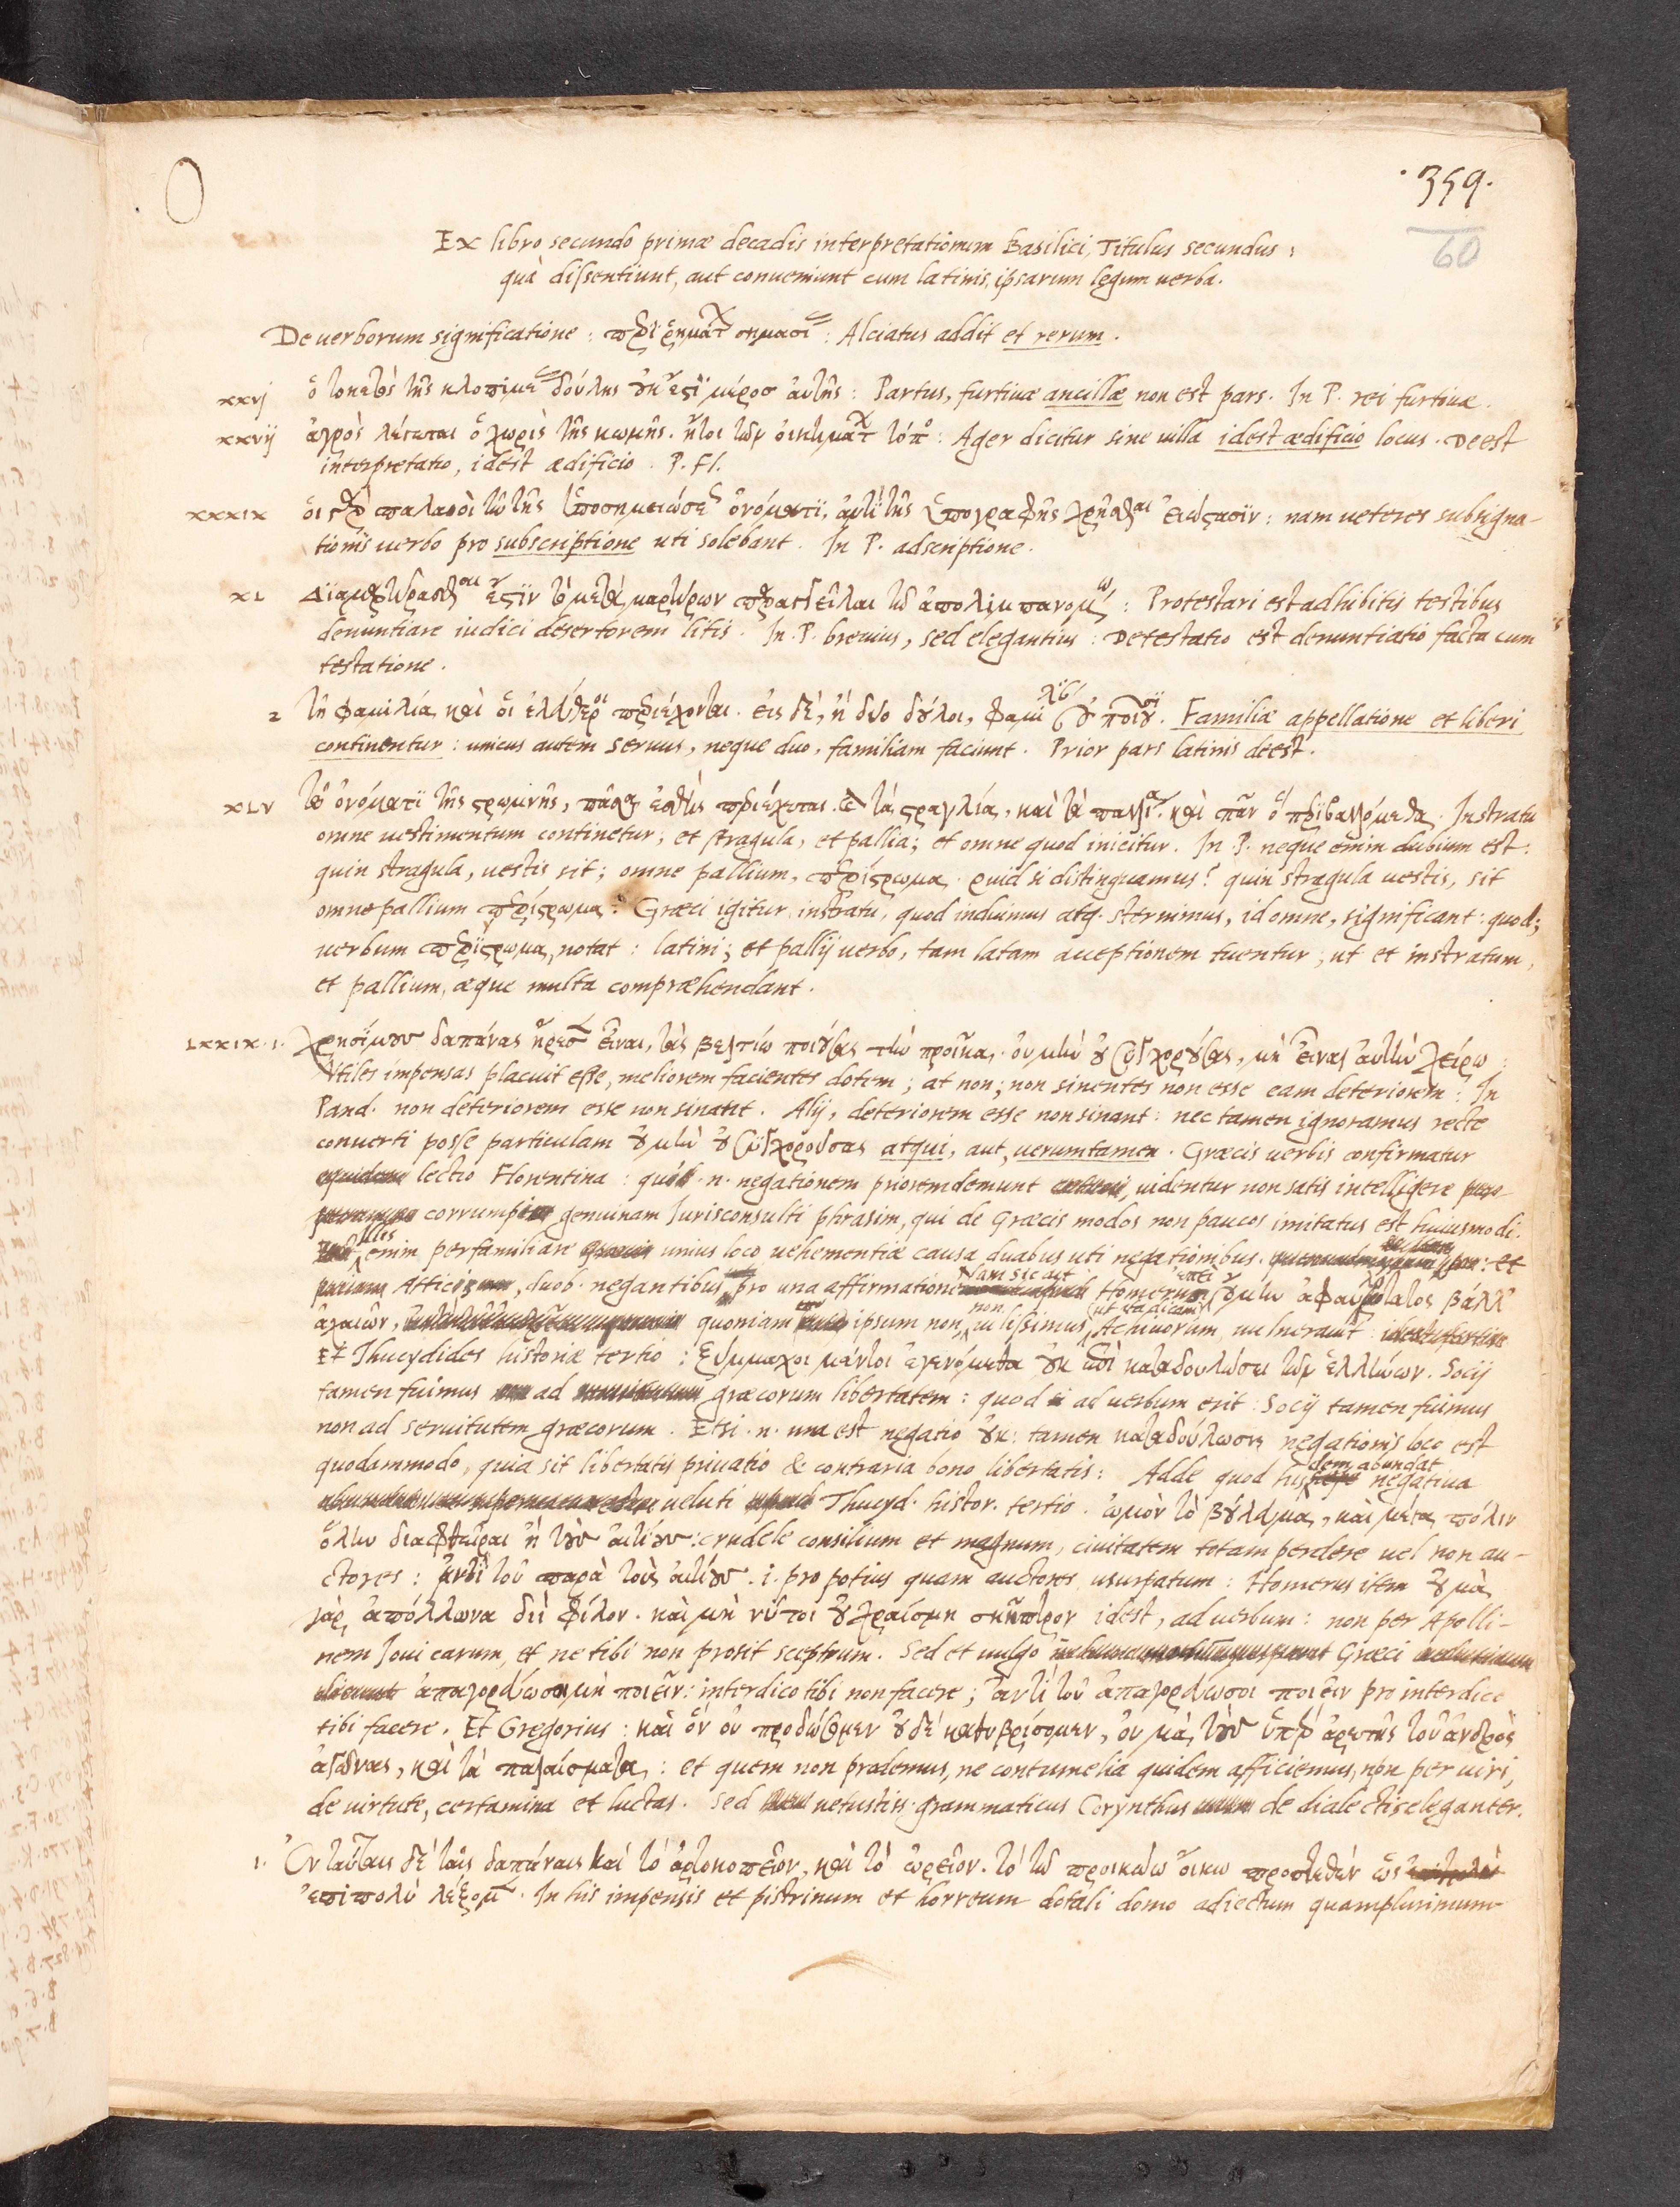 ·359·
60
Ex libro secundo primæ decadis interpretationum Basilici, Titulus secundus:
quà dissentiunt, aut conueniunt cum latinis, ipsarum legum uerba.
De uerborum significatione: περὶ ῥημάτ σημασί: Alciatus addit et rerum.
xxvj ὁ τοκετὸς τῆς κλοπιμ δούλης οὐκ ἐστὶ μέρος αὐτῆς: Partus, furtiuæ ancillæ non est pars. In P. rei furtiuæ.
xxvij ἀγρὸς λέγεται ὁ χωρὶς τῆς κώμης. ἤτοι τῶν οἰκημάτ τόπ: Ager dicitur sine uilla idest ædificio locus. Deest
interpretatio, idest ædificio. P. Fl.
xxxix οἱ γὰρ παλαιοὶ τῷ τῆς ὑποσημειώσε ὀνόματι, ἀντὶ τῆς ὑπογραφῆς χρῆσθαι εἰώθασιν: nam ueteres subsigna-
tionis uerbo pro subscriptione uti solebant. In P. adscriptione.
xl Διαμαρτύρασθαι ἐστιν τὸ μετὰ μαρτύρων παραγγεῖλαι τῷ ἀπολιμπανομ: Protestari est adhibitis testibus
denuntiare iudici desertorem litis. In. P. breuius, sed elegantius: Detestatio est denuntiatio facta cum
testatione.
2 τῇ φαμιλίᾳ καὶ οἱ ἐλεύθεροι περιέχονται. εἷς δὲ, ἢ δύο δοῦλοι, φαμιλίαν οὐ ποιοῦ. Familiæ appellatione et liberi
continentur: unicus autem seruus, neque duo, familiam faciunt. Prior pars latinis deest.
xlv τῷ ὀνόματι τῆς στρωμνῆς, πᾶσα ἐσθὴς περιέχεται. καὶ τὰ στραγλία, καὶ τὰ παλλία. καὶ πᾶν ὃ περιβαλλόμεθα. Instratu
omne uestimentum continetur; et stragula, et pallia; et omne quod inicitur. In. P. neque enim dubium est:
quin stragula, uestis sit; omne pallium, περίστρωμα. quid si distinguamus? quin stragula uestis, sit
omne pallium περίστρωμα? Græci igitur instratu, quod induimus atq. sternimus, id omne, significant: quod;
uerbum περίστρωμα, notat: latini; et pallij uerbo, tam latam acceptionem tuentur; ut et instratum,
et pallium, æque multa compræhendant.
lxxix.1. Χρησίμους δαπάνας ἤρεσ εἶναι, τὰς βελτίω ποιούσας τὴν προῖκα, οὐ μὴν οὐ συγχωρούσας, μὴ εἶναι αὐτὴν χείρω:
Vtiles impensas placuit esse, meliorem facientes dotem; at non; non sinentes non esse eam deteriorem: In
Pand. non deteriorem esse non sinant. Alij, deteriorem esse non sinant: nec tamen ignoramus recte
conuerti posse particulam οὐ μὴν οὐ συγχορούσας atqui, aut, uerumtamen. Græcis uerbis confirmatur
lectio Florentina: qui .n. negationem priorem demunt, uidentur non satis intelligere
corrump genuinam Iurisconsulti phrasim, qui de Græcis modos non paucos imitatus est huiusmodi.
illis enim perfamiliare unius loco uehementiæ causa duabus uti negationibus. et
Attic, duob. negantibus pro una affirmatione Nam sic ait Homerus ἐπεὶ οὐ μὴν ἀφαυρότατος βάλλ'
ἀχαιῶν, quoniam ipsum non, non uilissimus (ut ita dicam) Achiuorum uulnerauit
Et Thucydides historiæ tertio: ξύμμαχοι μέντοι ἐγενόμεθα οὐκ ἐπὶ καταδουλώσει τῶν ἑλλήνων. Socij
tamen fuimus ad græcorum libertatem: quod ad uerbum erit: Socij tamen fuimus
non ad seruitutem græcorum. Etsi .n. una est negatio οὐκ: tamen καταδούλωσις negationis loco est
quodammodo, quia sit libertatis priuatio & contraria bono libertatis: Adde quod hisdem abundat negatiua
ueluti Thucyd. histor. tertio. ὠμὸν τὸ βούλευμα, καὶ μέγα πόλιν
ὅλην διαφθεῖραι ἢ τοὺς αἰτίους: crudele consilium et magnum, ciuitatem totam perdere uel non au-
ctores: ἀντὶ τοῦ παρὰ τοὺς αἰτίους. i. pro potius quam auctores usurpatum: Homerus item οὐ μὰ
γὰρ ἀπόλλωνα διῒ φίλον. καὶ μὴ νύ τοι οὐ χραίσμη σκῆπτρον idest, ad uerbum: non per Apolli-
nem Ioui carum, et ne tibi non prosit sceptrum. Sed et uulgo Græci
ἀπαγορεύω σοι μὴ ποιεῖν: interdico tibi non facere; ἀντὶ τοῦ ἀπαγορεύω σοι ποιεῖν pro interdico
tibi facere. Et Gregorius: καὶ ὃν οὐ προδώσομεν οὐδὲ καθυβρίσομεν, οὐ μὰ τοὺς ὑπὲρ ἀρετῆς τοῦ ἀνδρὸς
ἀγῶνας, καὶ τὰ παλαίσματα: et quem non prodemus, ne contumelia quidem afficiemus, non per uiri,
de virtute, certamina et luctas. Sed uetustiss. grammaticus Corynthus de dialectis eleganter.
1. Ἐν ταύταις δὲ ταῖς δαπάναις καὶ τὸ ἀρτοκοπεῖον, καὶ τὸ ὡρεῖον. τὸ τῷ προικώῳ οἴκῳ προστεθὲν ὡς
ἐπιπολὺ λέξομ. In his impensis et pistrinum et horreum dotali domo adiectum quamplurimum